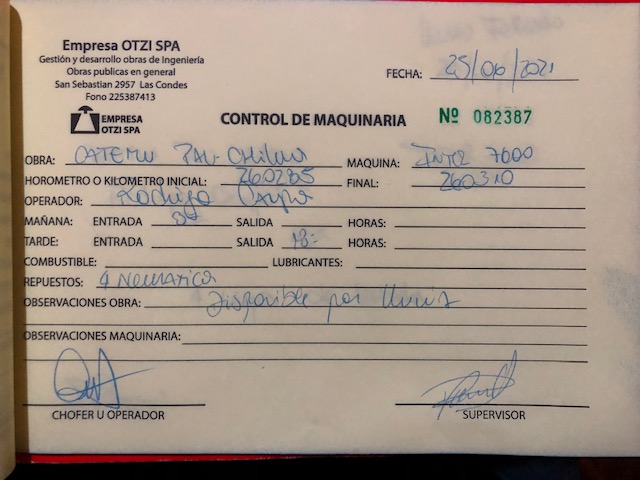 Empresa OTZI SPA
Gestión y desarrollo obras de Ingeniería
Obras publicas en general
San Sebastian 2957 Las Condes
Fono 225387413
FECHA: 25/06/2021
EMPRESA
OTZI SPA
CONTROL DE MAQUINARIA Nº 082387
OBRA: MAQUINA: INTR 7600
HOROMETRO O KILOMETRO INICIAL: 260285 FINAL: 260310
OPERADOR: Rodrigo
MAÑANA: ENTRADA SALIDA HORAS:
TARDE: ENTRADA SALIDA 18= HORAS:
COMBUSTIBLE: LUBRICANTES:
REPUESTOS: 1 Neumatico
OBSERVACIONES OBRA: Disponible por lluvia
OBSERVACIONES MAQUINARIA:
CHOFER U OPERADOR SUPERVISOR